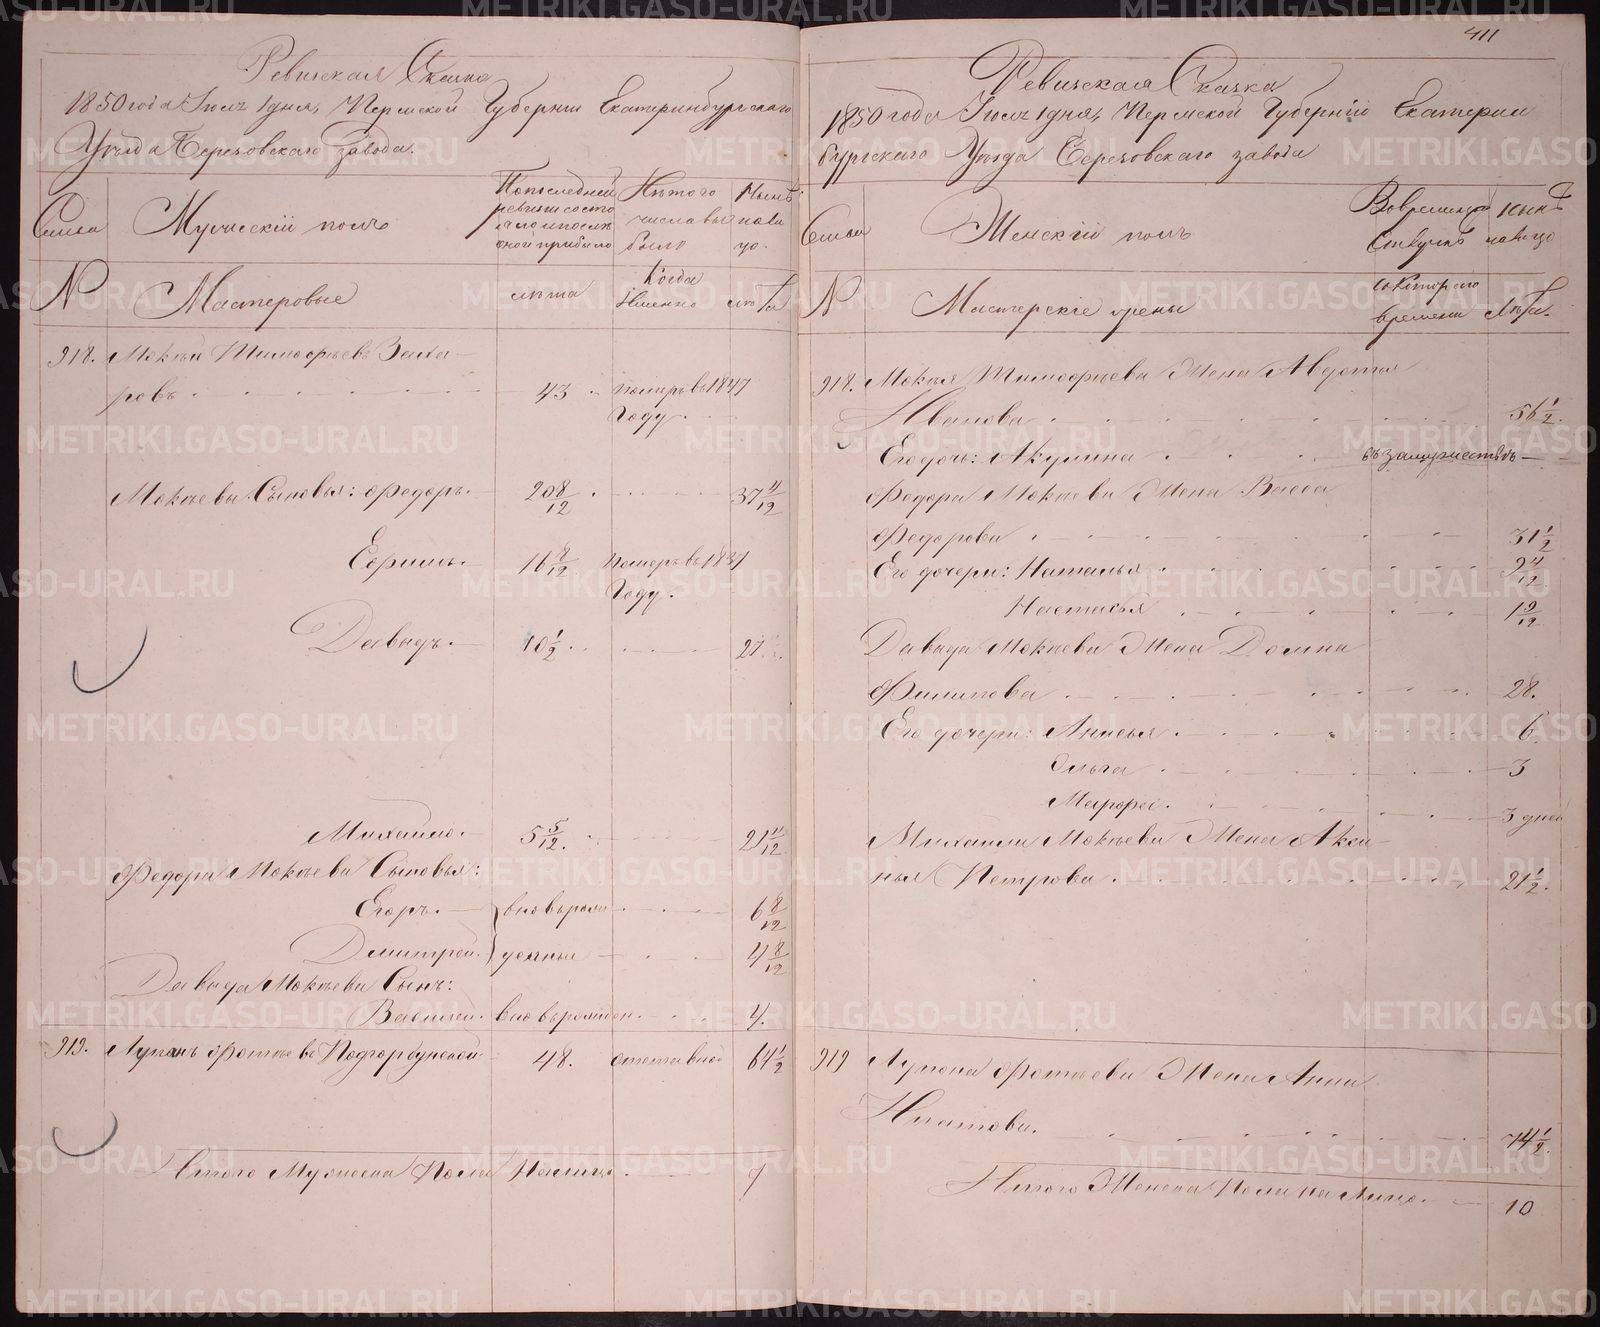 Ревизская Сказка
1850 года Июля 1 дня, Пермской Губернии Екатеринбургского
Уезда Березовского завода.
Семьи
Мужеский полъ
По последней
ревизии состо
яло и после
оной прибыло
Изъ того
числа вы
было
Ныне
на ли
цо.
№
Мастеровые
лета
Когда
Именно
лета
918. Мокей Тимофеевъ Заха
ровъ 43 померъ въ 1847
Году.
Мокеевы Сыновья: Федоръ. 20 8/12 37 11/12
Ефимъ. 16 8/12 померъ въ 1837
Году.
Давыдъ. 10 1/2 27
Михайло. 5 5/12. 21 11/12
Федора Мокеева Сыновья:
Егоръ. вновь рож 6 8/12
Дмитрей. денные 4 8/12
Давыда Мокеева Сынъ:
Василей. вновь рожден. 4.
919. Лупанъ Фотеевъ Подгорбунской 48. отставной 64 1/2
Итого Мужеска Пола Налицо 9
411
Ревизская Сказка
1850 года Июля 1 дня, Пермской Губернии Екатерин
бургского Уезда Березовского завода
Семьи
Женский полъ
Во временной
отлучке
Ныне
на лицо
№
Мастерские жены
съ которого
времени
Лета.
918. Мокея Тимофеева Жена Авдотья
Иванова 56 1/2.
Его дочь: Акулина въ замужестве
Федора Мокеева Жена Васса
Федорова 31 1/2
Его дочери: Наталья 9 4/12
Настасья 1 9/12
Давыда Мокеева Жена Домна
Филипова 28.
Его дочери: Анисья 6
Ольга 3
Марфа. 3 дней
Михайла Мокеева Жена Акси
нья Петрова. 21 1/2.
919 Лупона Фотеева Жена Анна
Ипатова. 74 1/2.
Итого Женска Пола на Лицо. 10
METRIKI.GASO-URAL.RU